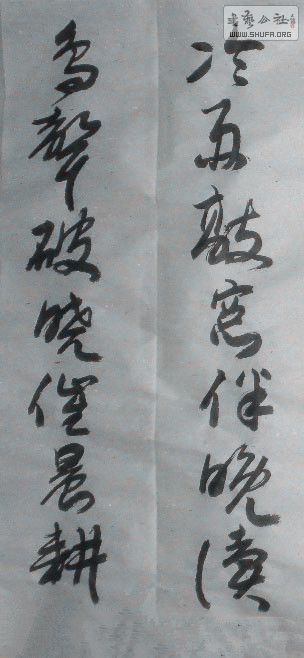 冷雨敲窗伴晚读
鸟聲破晓催晨耕
书艺公社
WWW.SHUFA.ORG